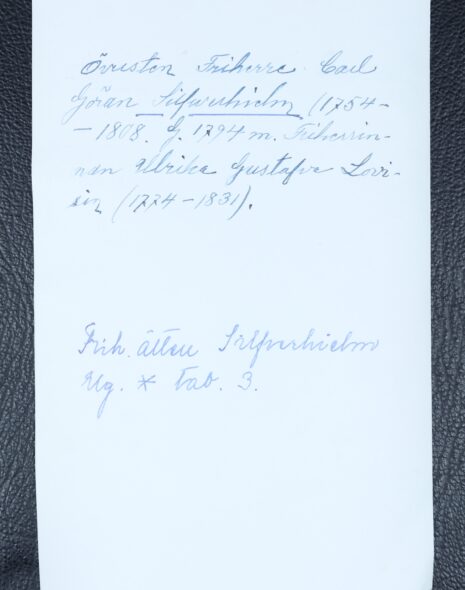 Översten Friherre Carl
Göran Silfverhielm (1754-
-1808. G. 1794 m. Friherrin-
nan Ulrika Gustafva Lovi-
sin (1774-1831).
Frih. ätten Silfverhielm
Elg. * Tab. 3.